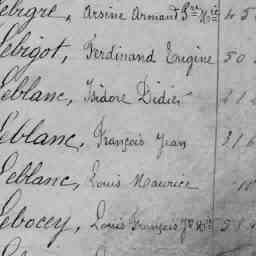 Lebigre, Arsène Armand
Lebigot, Ferdinand Eugène 50
Leblanc, Isidore Didier
Leblanc, François Jean 316
Leblanc, Louis Maurice
Lebocey, Louis François